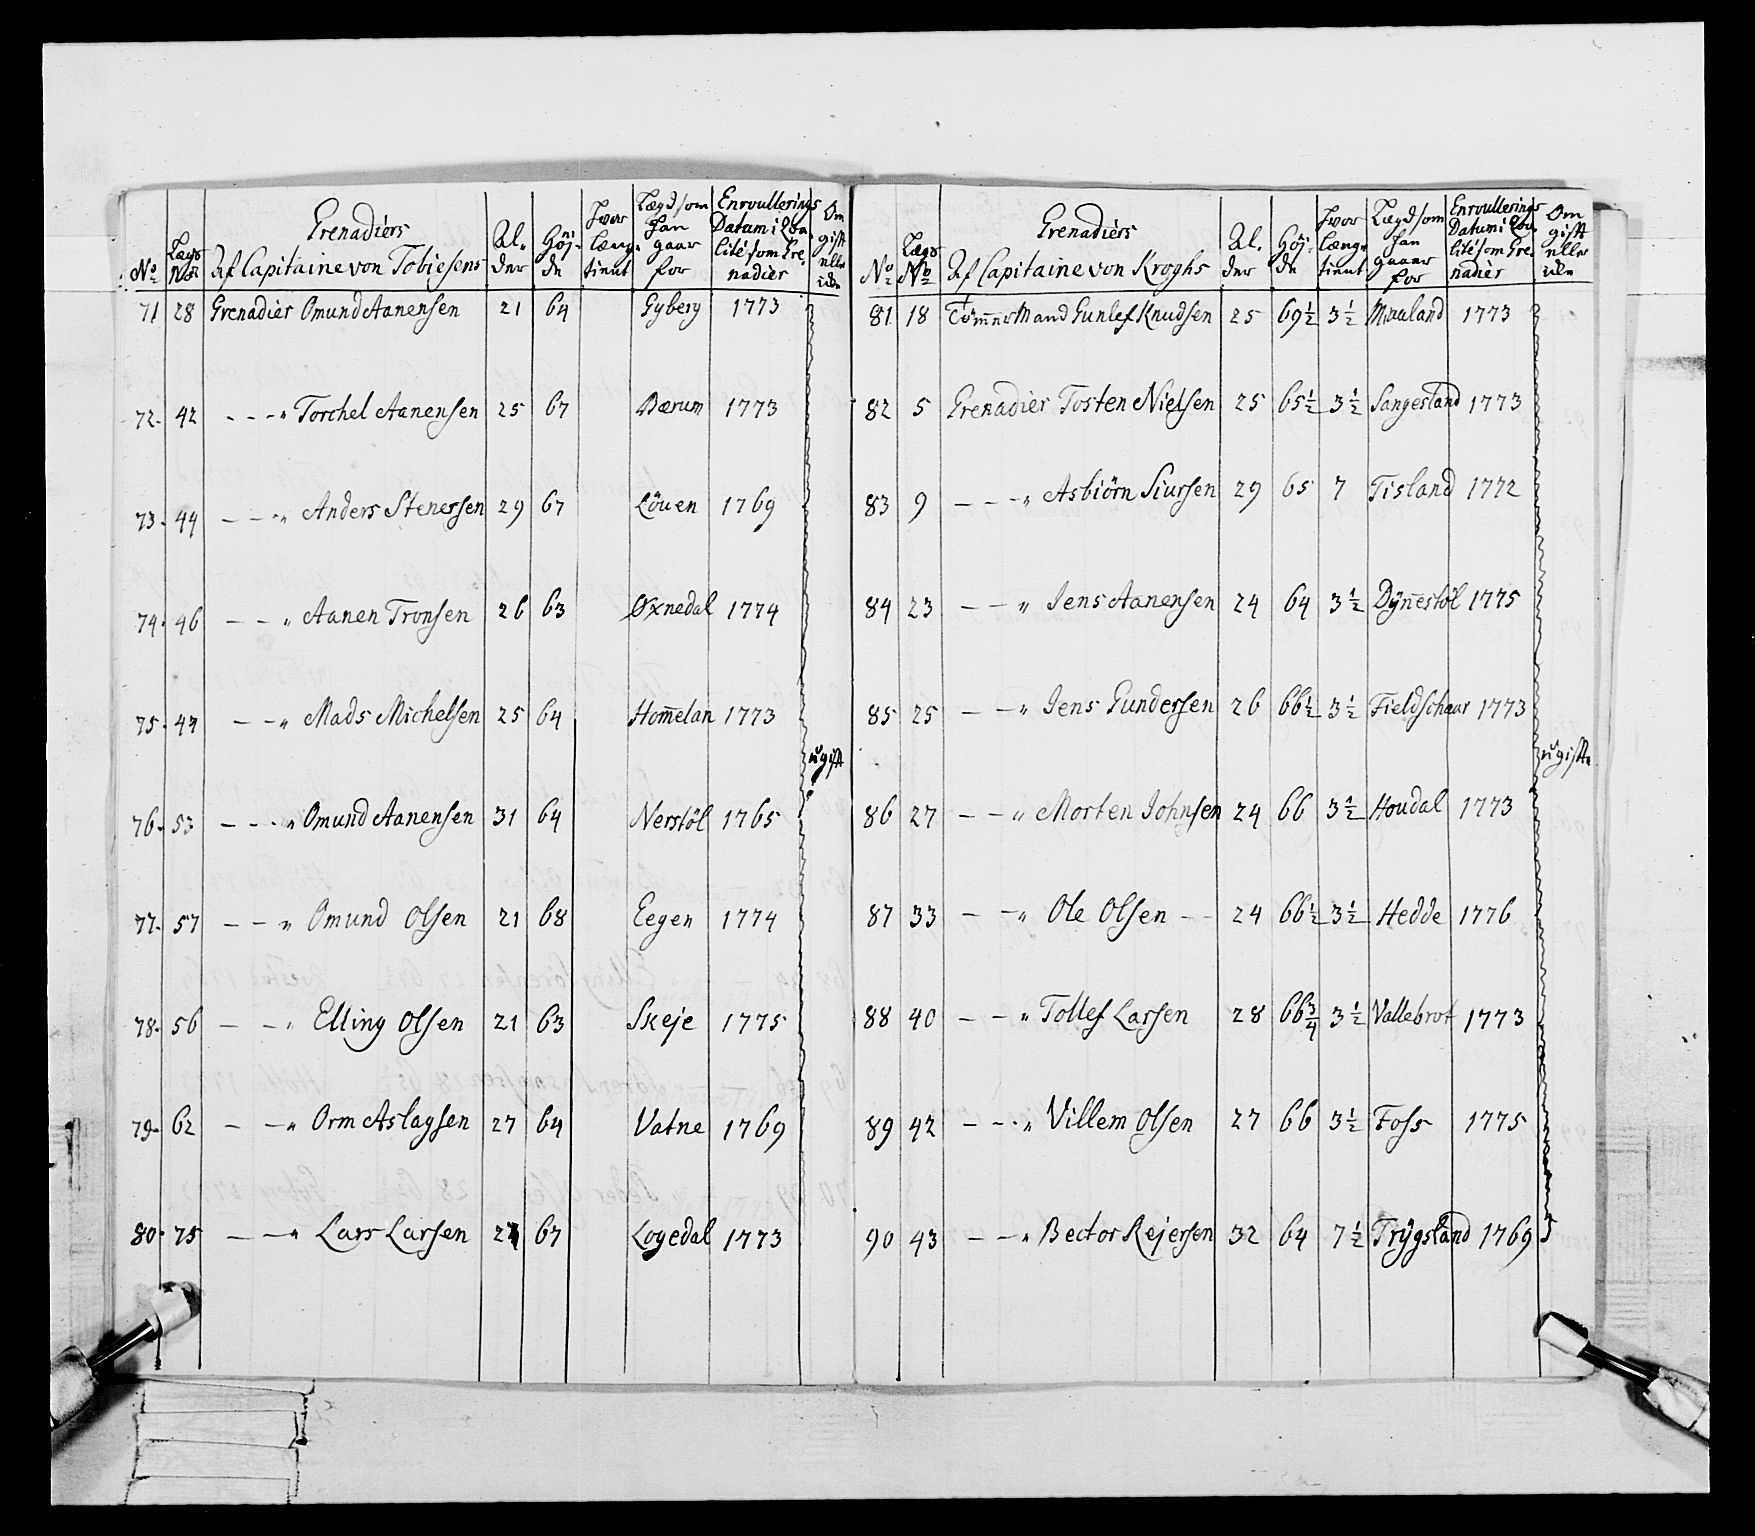 No
Lægs No
Grenadiers
Af Capitaine von Tobiesens
Al-
der
Höj-
de
Hvor
længe
tient
Lægd som
Han
gaar
for
Enroullerings
Datum i Qva
lité som Gre
nadier
Om
gift
eller
71 28 Grenadier Omund Aanensen 21 64 Gyberg 1773
72. 42 - - - " Torchel Aanensen 25 67 Bærum 1773
73. 44 - - - " Anders Stenersen 29 67 Löuen 1769
74. 46 - - " Aanen Tronsen 26 63 Oxnedal 1774
75. 47 - - " Mads Michelsen 25 64 Hom̅elan 1773
ugift
76. 53 - - - " Omund Aanensen 31 64 Nerstöl 1765
77. 57 - - " Omund Olsen 21 68 Eegen 1774
78. 56 - - " Elling Olsen 21 63 Skeje 1775
79. 62 - - " Orm Aslagsen 27 64 Vatne 1769
80. 75 - - " Lars Larsen 67 Logedal 1773
No
Lægs No
Grenadiers
Af Capitaine von Kroghs
Al.
der
Höj-
de
Hvor
længe
tient
Lægd som
Han
gaaer
for
Enroullerings
Datum i Qva
lité som Gre
nadier
Om
gift
eller
81 18 Töm̅erMand Gunlef Knudsen 25 69½ 3½ Mauland 1773
82 5 Grenadier Tosten Nielsen 25 65½ 3½ Sangesland 1773
83 9 - - - " Asbiörn Siursen 29 65 7 Tisland 1772
84 23 - - " Jens Aanensen 24 64 3½ Dynestöl 1775
85 25 - - " Jens Gundersen 26 66½ 3½ Fieldschaar 1773
ugifte
86 27 - - " Morten Johnsen 24 66 3½ Houdal 1773
87 33 - - " Ole Olsen - - 24 66½ 3½ Hedde 1776
88 40 - - " Tollef Larsen 28 66¾ 3½ Vallebrot 1773
89 42 - - - " Villem Olsen 27 66 3½ Foss 1775
90 43 - - " Bector Rejersen 32 64 7½ Trÿgsland 1769